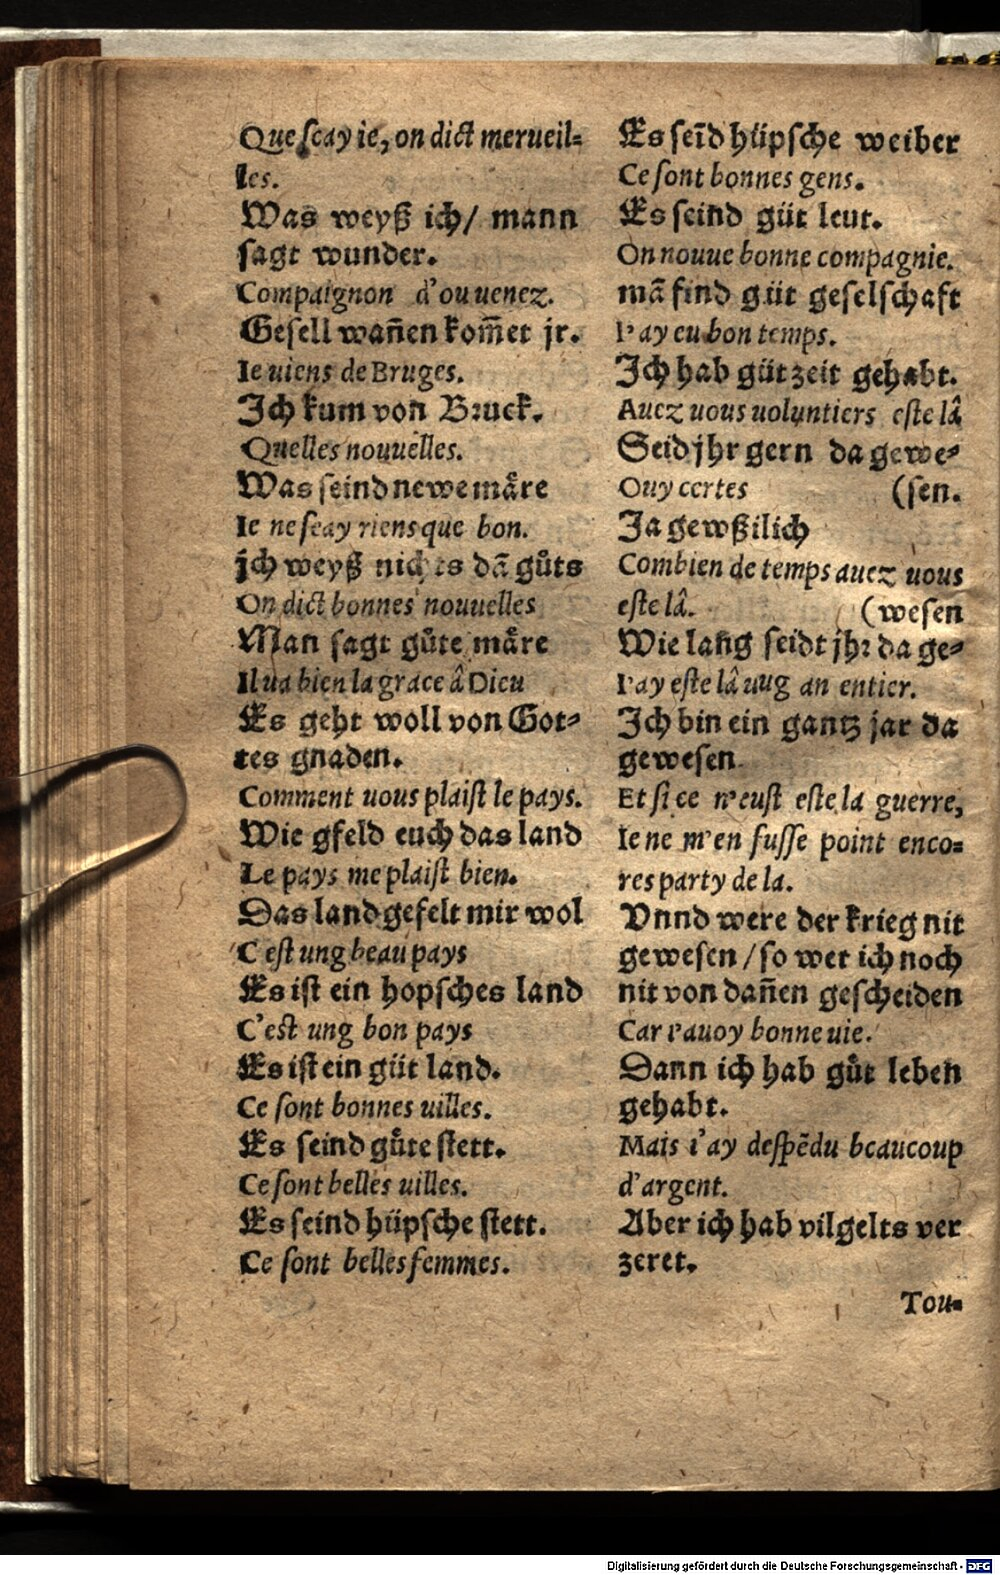 Que scay ie, on dict merueil-
les.
Was weyß ich/ mann
sagt wunder.
Compaignon d'ou uenez.
Gesell wañen kom̃et jr.
Ie uiens de Bruges.
Ich kum von Bruck.
Quelles nouuelles.
Was seind newe måre
Ie ne scay riens que bon.
ich weyß nichts dañ gůts
On dict bonnes nouuelles
Man sagt gůte måre
Il ua bien la grace â Dieu
Es geht woll von Got-
tes gnaden.
Comment uous plaist le pays.
Wie gfeld euch das land
Le pays me plaist bien.
Das land gefelt mir wol
C est ung beau pays
Es ist ein hopsches land
C'est ung bon pays
Es ist ein güt land.
Ce sont bonnes uilles.
Es seind gůte stett.
Ce sont belles uilles.
Es seind hüpsche stett.
Ce sont belles femmes.
Es seĩd hüpsche weiber
Ce sont bonnes gens.
Es seind güt leut.
On nouue bonne compagnie.
mã find güt geselschaft
I'ay eu bon temps.
Ich hab güt zeit gehabt.
Auez uous uoluntiers este lâ
Seid jhr gern da gewe-
Ouy certes (sen.
Ja gewßilich
Combien de temps auez uous
este lâ. (wesen
Wie lañg seidt jhr da ge-
I'ay este lâ uug an entier.
Ich bin ein gantz jar da
gewesen
Et si ce n'eust este la guerre,
Ie ne m'en fusse point enco-
res party de la.
Vnnd were der krieg nit
gewesen / so wer ich noch
nit von dañen gescheiden
Car i'auoy bonne uie.
Dann ich hab gůt leben
gehabt.
Mais i'ay despẽdu beaucoup
d'argent.
Aber ich hab vil gelts ver
zeret.
Tou-
Digitalisierung gefördert durch die Deutsche Forschungsgemeinschaft - DFG